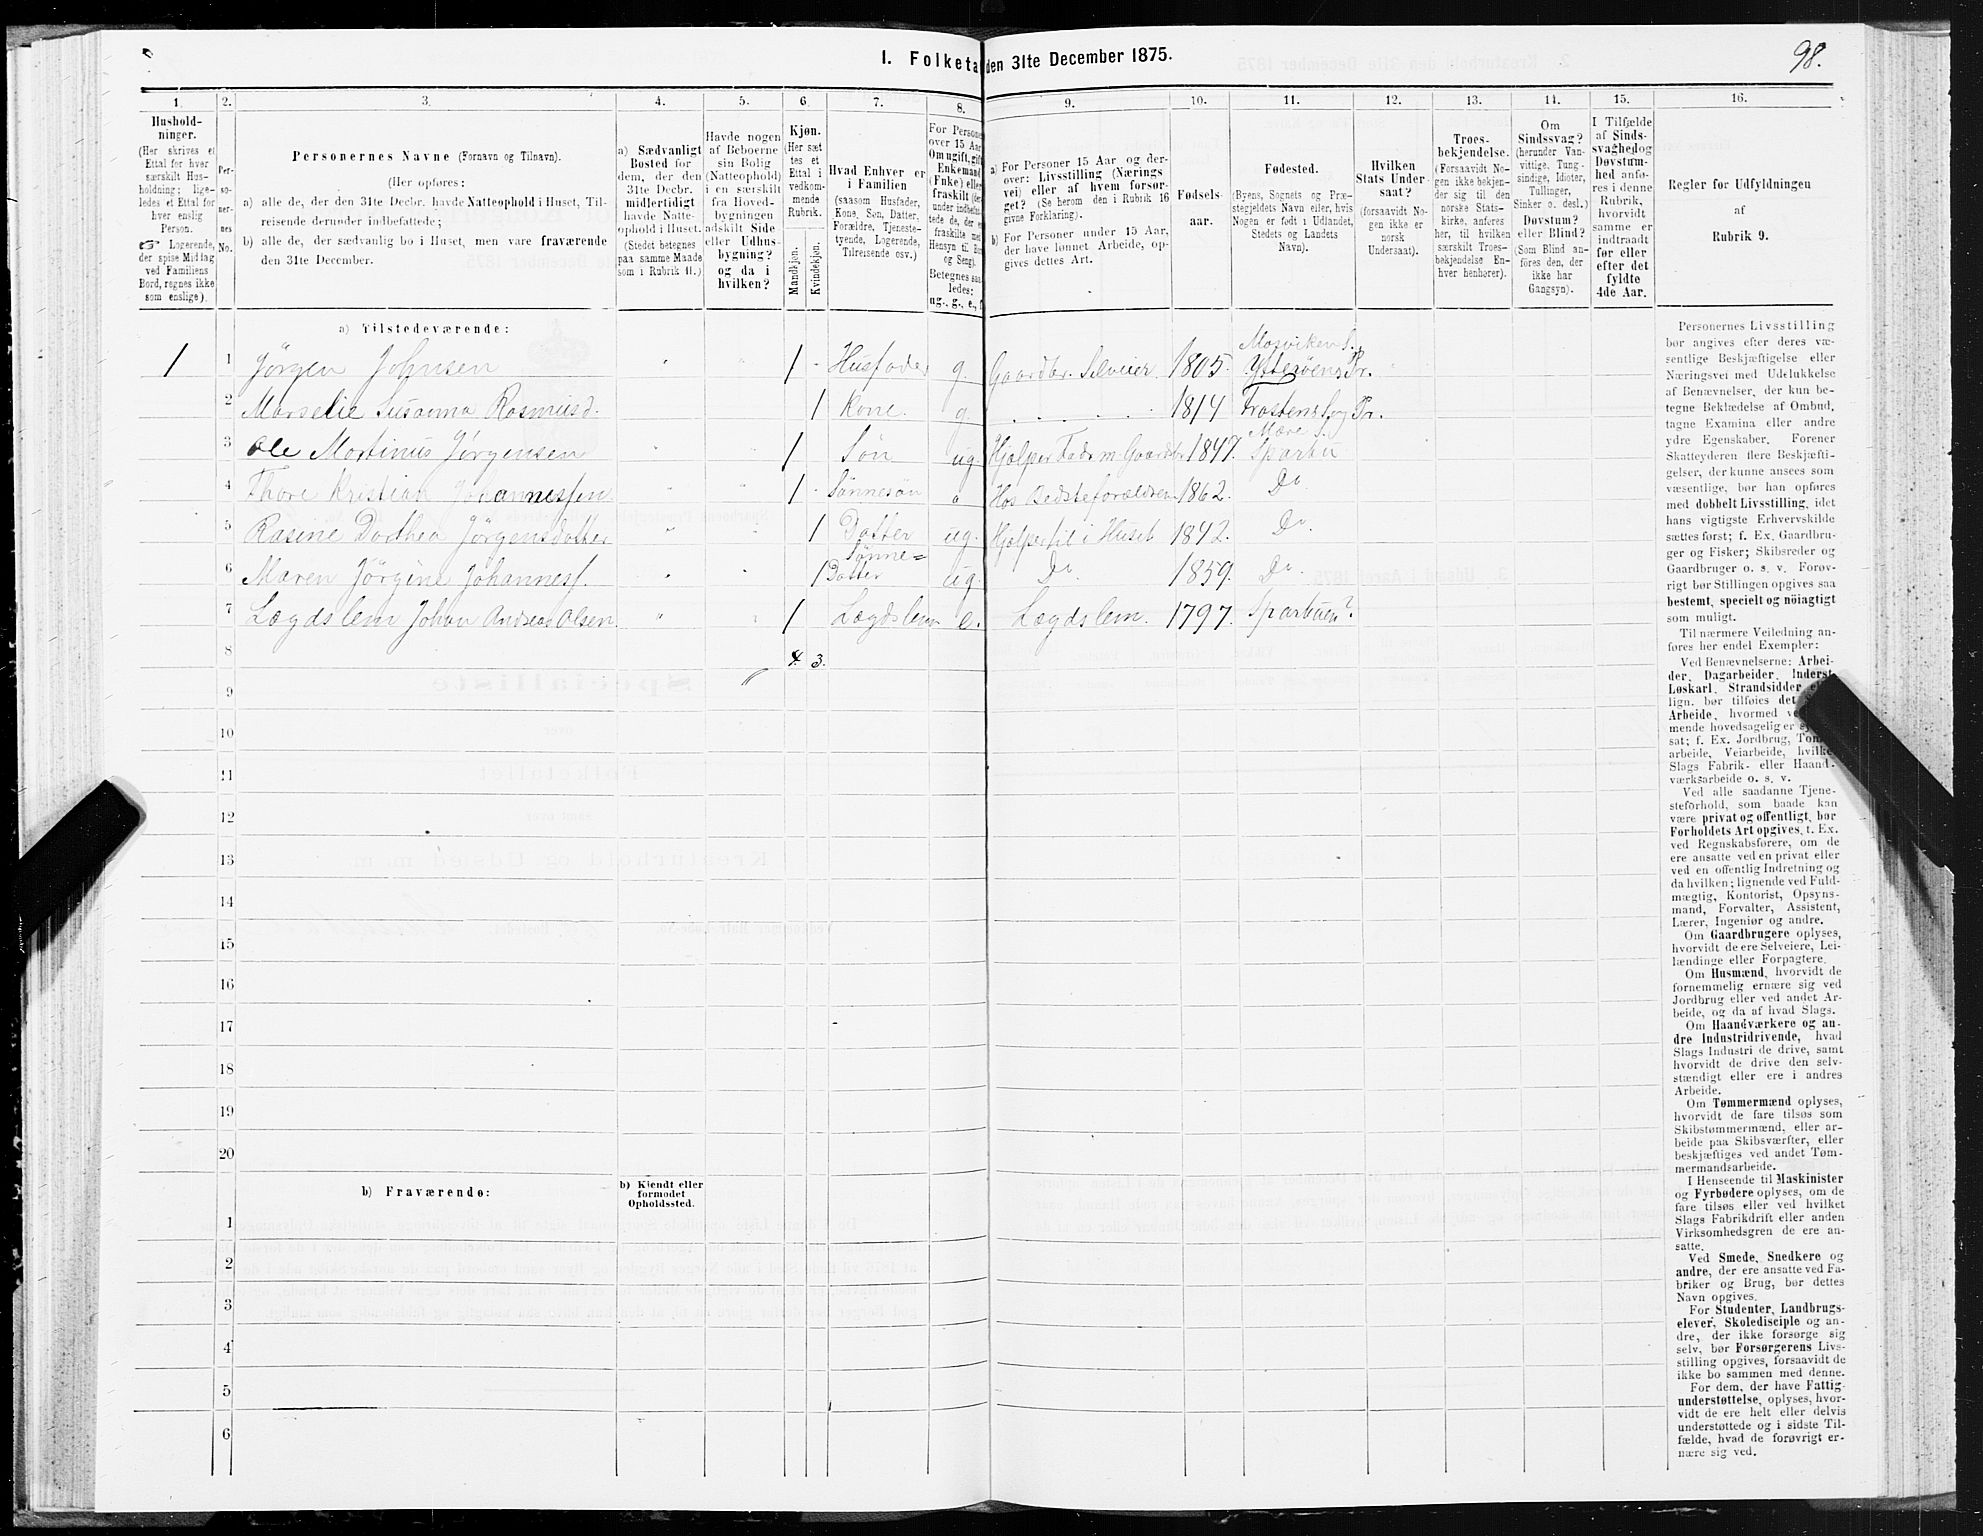 I. Folketa den 31te December 1875.
98.
1. 2. 3. 4. 5. 6. 7. 8. 9. 10. 11. 12. 13. 14. 15. 16.
Hushold-
ninger.
(Her skrives et
Ettal for hver
særskilt Hus-
holdning; lige-
ledes et Ettal for
hver enslig
Person.
☞ Logerende,
der spise Middag
ved Familiens
Bord, regnes ikke
som enslige).
Per-
so-
ner-
nes
No.
Personernes Navne (Fornavn og Tilnavn).
(Her opføres:
a) alle de, der den 31te Decbr. havde Natteophold i Huset, Til-
reisende derunder indbefattede;
b) alle de, der sædvanlig bo i Huset, men vare fraværende
den 31te December.
a) Sædvanligt
Bosted for
dem, der den
31te Decbr.
midlertidigt
havde Natte-
ophold i Huset.
(Stedet betegnes
paa samme Maade
som i Rubrik 11.)
Havde nogen
af Beboerne
sin Bolig
(Natteophold)
i en særskilt
fra Hoved-
bygningen
adskilt Side
eller Udhus-
bygning?
og da i
hvilken?
Kjøn.
(Her sæt
tes et
Ettal i
vedkom-
mende
Rubrik.
Mandkjøn.
Kvindekjøn.
Hvad Enhver er
i Familien
(saasom Husfader,
Kone, Søn, Datter,
Forældre, Tjeneste-
tyende, Logerende,
Tilreisende osv.)
For Persone
over 15 Aar
Om ugift, gift
Enkemand
(Enke) eller
fraskilt
under
tede de, der e
fraskilte med
Hensyn til Bor
og Seng).
Betegnes saa
ledes:
ug., g., e., f
a) For Personer 15 Aar og der-
over: Livsstilling (Nærings
vei) eller af hvem forsør-
get? (Se herom den i Rubrik 16
givne Forklaring).
b) For Personer under 15 Aar,
der have lønnet Arbeide, op-
gives dettes Art.
Fødsels-
aar.
Fødested.
(Byens, Sognets og Præ-
stegjeldets Navn eller, hvis
Nogen er født i Udlandet,
Stedets og Landets
Navn).
Hvilken
Stats Under-
saat?
(forsaavidt No-
gen ikke er
norsk
Undersaat).
Troes-
bekjendelse.
(Forsaavidt No-
gen ikke bekjen-
der sig til den
norske Stats-
kirke, anføres
her, til hvilken
særskilt Troes-
bekjendelse En-
hver henhører).
Om
Sindssvag?
(herunder Van-
vittige, Tung-
sindige, Idioter,
Tullinger,
Sinker o. desl.)
Døvstum?
eller Blind?
(Som Blind an-
føres den, der
ikke har
Gangsyn).
I Tilfælde
af Sinds-
svaghed og
Døvstum-
hed anfø-
res i denne
Rubrik,
hvorvidt
samme er
indtraadt
før eller
efter det
fyldte
4de Aar.
Regler for Udfyldningen
af
Rubrik 9.
a) Tilstedeværende:
Mosviken S.
1 1 Jörgen Johnsen " " 1 - Husfader g. Gaardbr. Selveier 1805. Ytterøens Pr.
2 Marselie Susanna Rasmusd. 1 Kone. g. 1814 Frostens S. og Pr.
Mære S.
3 Ole Martinus Jörgensen " " 1 Søn ug. Hjælper Fader m. Gaardbr 1847. Sparbu
4 Thore Kristian Johannessen " " 1 - Sønnesøn Hos Bedsteforældrene 1862. Do.
5 Rasine Dorthea Jörgensdatter " " 1 Datter ug. Hjelper til i Huset 1842. Do.
6 Maren Jörgine Johannesf. " " 1 Sønne=
Datter ug. Do. 1859. Do.
7 Lægdslem Johan Andreas Olsen " " 1 Lægdslem e. Lægdslem. 1797. Sparbuen?
8 4. 3.
9
10
11
12
13
14
15
16
17
18
19
20
b) Fraværende:
b) Kjendt eller
formodet
Opholdssted.
1
2
3
4
5
6
Personernes Livsstilling
bør angives efter deres væ-
sentlige Beskjæftigelse eller
Næringsvei med Udelukkelse
af Benævnelser, der kun be-
tegne Beklædelse af Ombud,
tagne Examina eller andre
ydre Egenskaber. Forener
Skatteyderen flere Beskjæfti-
gelser, der kunne ansees som
væsentlige, bør han opføres
med dobbelt Livsstilling, idet
hans vigtigste Erhvervskilde
sættes først; f. Ex. Gaardbru-
ger og Fisker; Skibsreder og
Gaardbruger o. s. v. Forøv-
rigt bør Stillingen opgives saa
bestemt, specielt og nøiagtigt
som muligt.
Til nærmere Veiledning an-
føres her endel Exempler:
Ved Benævnelserne: Arbei-
der, Dagarbeider, Inderst
Løskarl, Strandsidder
lign. bør tilføies det
Arbeide, hvormed
mende hovedsagelig er
sat; f. Ex. Jordbrug,
arbeide, Veiarbeide, hvilke
Slags Fabrik- eller Haand-
værksarbeide o. s. v.
Ved alle saadanne Tjene-
steforhold, som baade kan
være privat og offentligt, bør
Forholdets Art opgives, t. Ex.
ved Regnskabsførere, om de
ere ansatte ved en privat eller
ved en offentlig Indretning og
da hvilken; lignende ved Fuld-
mægtig, Kontorist, Opsyns-
mand, Forvalter, Assistent,
Lærer, Ingeniør og andre.
Om Gaardbrugere oplyses,
hvorvidt de ere Selveiere, Lei-
lændinge eller Forpagtere.
Om Husmænd, hvorvidt de
fornemmelig ernære sig ved
Jordbrug eller ved andet Ar-
beide, og da af hvad Slags.
Om Haandværkere og an-
dre Industridrivende, hvad
Slags Industri de drive, samt
hvorvidt de drive den selv-
stændigt eller ere i andres
Arbeide.
Om Tømmermænd oplyses,
hvorvidt de fare tilsøs som
Skibstømmermænd, eller ar-
beide paa Skibsværfter, eller
beskjæftiges ved andet Tøm-
mermandsarbeide.
I Henseende til Maskinister
og Fyrbødere oplyses, om de
fare tilsøs eller ved hvilket
Slags Fabrikdrift eller anden
Virksomhedsgren de ere an-
satte.
Ved Smede, Snedkere og
andre, der ere ansatte ved Fa-
briker og Brug, bør dettes
Navn opgives.
For Studenter, Landbrugs-
elever, Skoledisciple og an-
dre, der ikke forsørge sig
selv, bør Forsørgerens Livs-
stilling opgives, forsaavidt de
ikke bo sammen med denne.
For dem, der have Fattig-
understøttelse, oplyses, hvor-
vidt de ere helt eller delvis
understøttede og i sidste Til-
fælde, hvad de forøvrigt er-
nære sig ved.